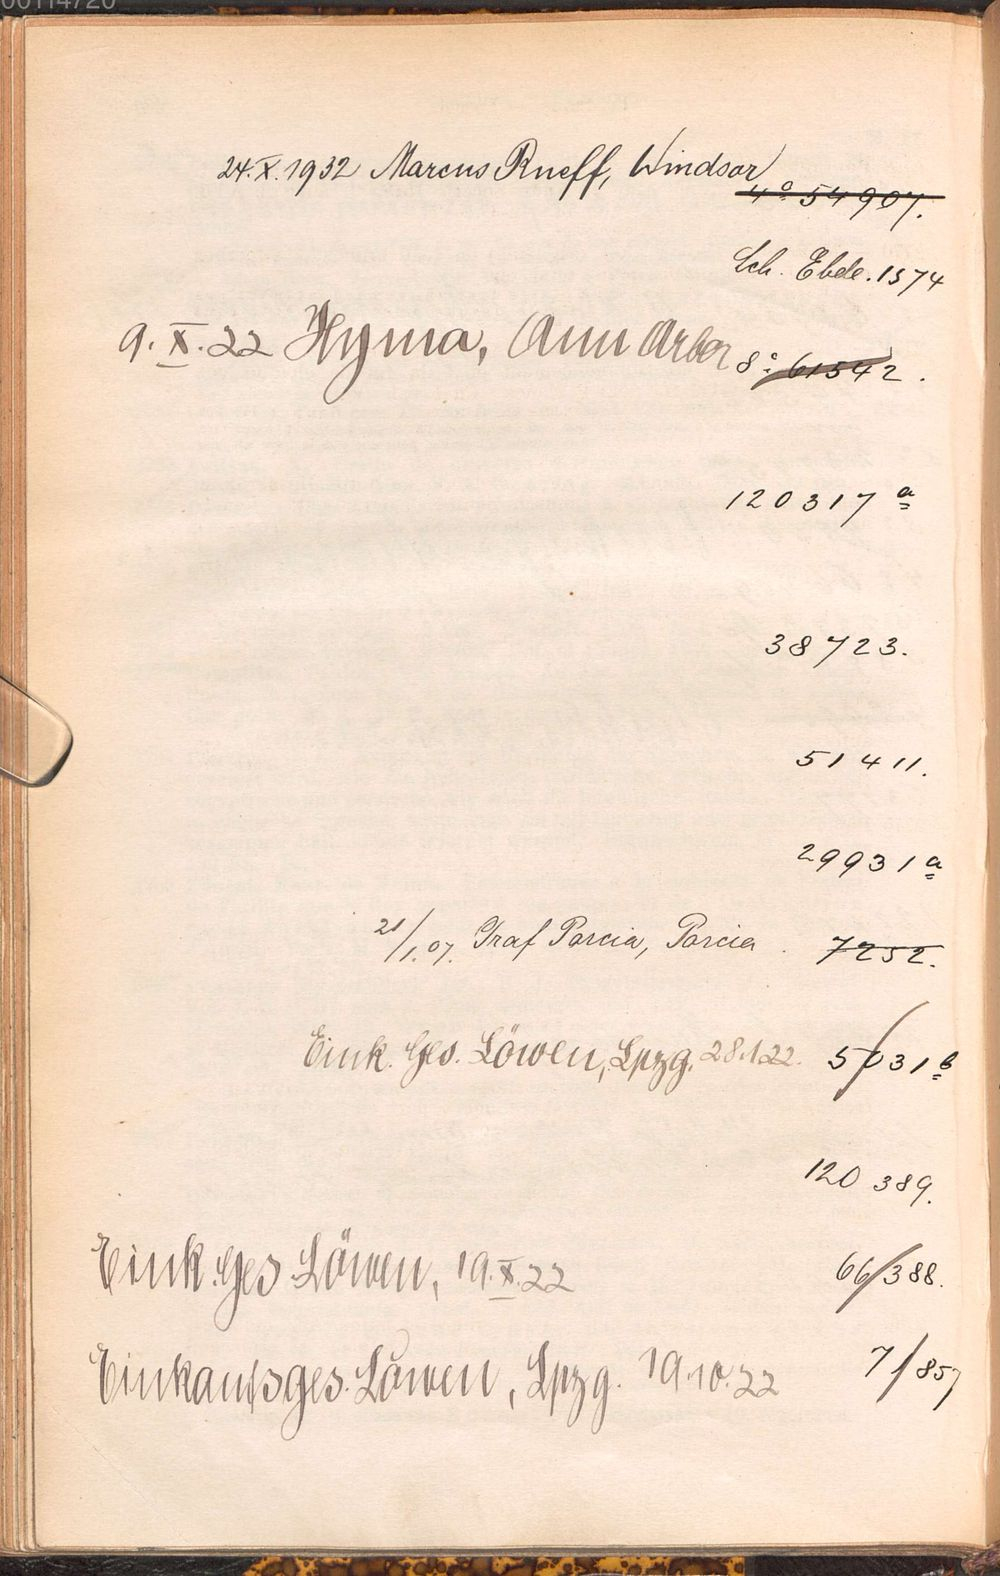 00114720
24.X.1932 Marcus Rueff, Windsor
4° 54907.
Sch. Ebde. 1574
9.X.22 Hyma, Ann Arbor 8° 61542.
120317 a
38723.
51411.
29931 a
21/1.07. Graf Porcia, Porcia. 7252.
Eink. Ges. Löwen, Lpzg. 28.1.22. 5031 b
120389.
Eink. Ges. Löwen, 19.X.22 66388.
Einkaufsges. Löwen, Lpzg. 19.10.22 71857